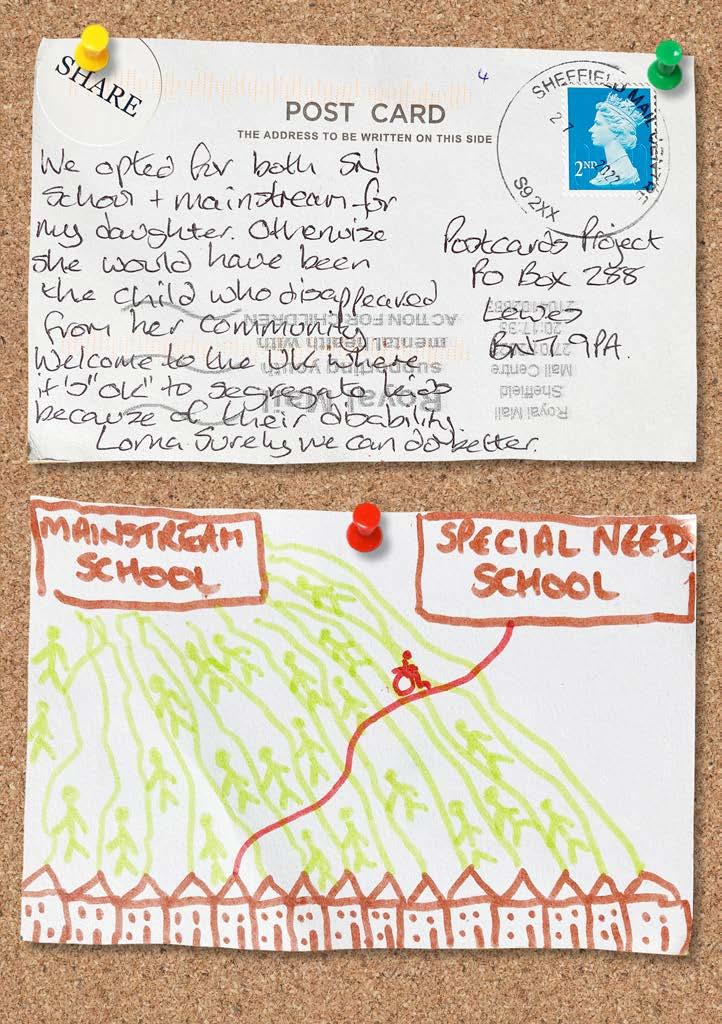 SHARE
4
POST CARD
THE ADDRESS TO BE WRITTEN ON THIS SIDE
SHEFFIELD MAIL CENTRE
27 2022
S9 2XX
2ND
We opted for both SN
School + mainstream for
my daughter. Otherwise
she would have been
the child who disappeared
from her community.
Welcome to the UK where
it's "ok" to segregate kids
because of their disability.
Lorna. Surely we can do better.
Postcards Project
Po Box 288
Lewes
BN7 9PA.
Royal Mail
supporting youth
mental health with
ACTION FOR CHILDREN
Royal Mail
Sheffield
Mail Centre
MAINSTREAM
SCHOOL
SPECIAL NEEDS
SCHOOL